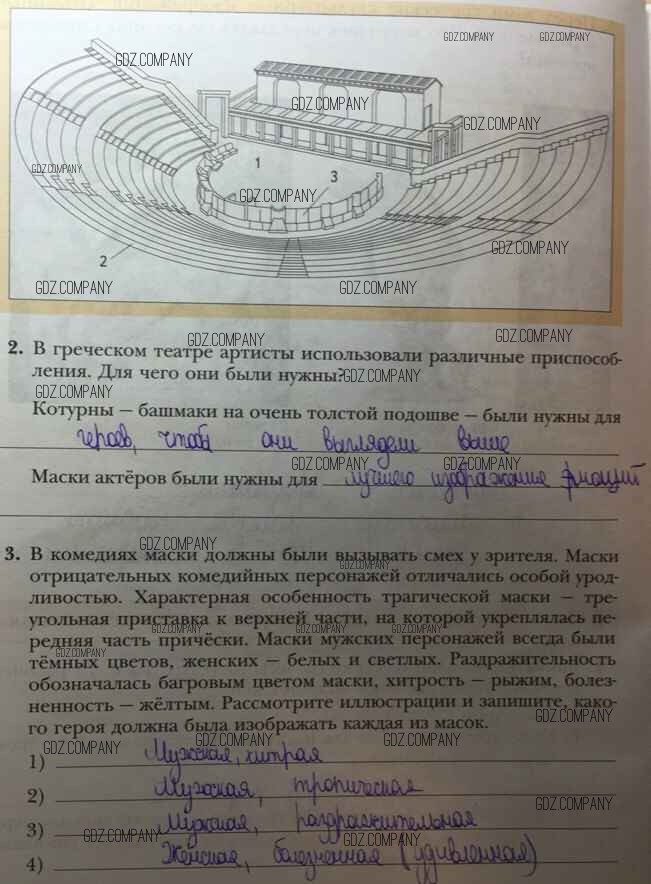 GDZ.COMPANY
GDZ.COMPANY
GDZ.COMPANY
GDZ.COMPANY
GDZ.COMPANY
1
GDZ.COMPANY
GDZ.COMPANY
3
2
GDZ.COMPANY
GDZ.COMPANY
GDZ.COMPANY
GDZ.COMPANY
GDZ.COMPANY
2. В греческом театре артисты использовали различные приспособ-
ления. Для чего они были нужны?
GDZ.COMPANY
GDZ.COMPANY
Котурны — башмаки на очень толстой подошве — были нужны для
героев, чтобы они выглядели выше
GDZ.COMPANY
GDZ.COMPANY
Маски актёров были нужны для лучшего изображения эмоций
GDZ.COMPANY
GDZ.COMPANY
3. В комедиях маски должны были вызывать смех у зрителя. Маски
GDZ.COMPANY
отрицательных комедийных персонажей отличались особой урод-
ливостью. Характерная особенность трагической маски — тре-
угольная приставка к верхней части, на которой укреплялась пе-
GDZ.COMPANY
GDZ.COMPANY
GDZ.COMPANY
редняя часть причёски. Маски мужских персонажей всегда были
GDZ.COMPANY
тёмных цветов, женских — белых и светлых. Раздражительность
обозначалась багровым цветом маски, хитрость — рыжим, болез-
ненность — жёлтым. Рассмотрите иллюстрации и запишите, како-
GDZ.COMPANY
го героя должна была изображать каждая из масок.
GDZ.COMPANY
GDZ.COMPANY
GDZ.COMPANY
1) Мужская, хитрая
2) Мужская, трогическая
GDZ.COMPANY
3) Мужская, раздражительная
GDZ.COMPANY
GDZ.COMPANY
4) Женская, болезненная (удивленная)